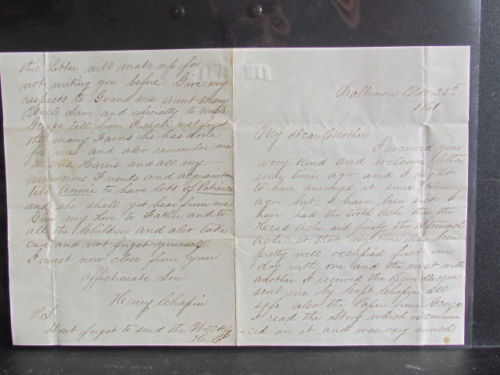 this Letter will make up for
not writing you before. Give my
respects to Grand Ma Aunt Mary
Uncle Sam and especially to Uncle
George tell him I
the many favors he has done
for me and also remember me
to Mrs Harris and all my
numerous Friends and
tell Annie to have lots of Patience
and she shall get hear from me
Give my Love to Father and to
all the Children and also take
care and not forget yourself
I must now close from your
Affectionate Son
Henry Chapin
P.S.
Dont forget to send the
H. C.
Baltimore Nov 25th
1860
My Dear Mother
I received your
very kind and welcome letter
some time ago and I ought
to have answered it some time
ago but I have been sick I
have had the tooth ache then the
Head Ache and finely the Stomach
Ache so that my time has been
pretty well occupied first one
day with one and the next with
another I received the Bundle you
sent me by Capt Chapin all
safe also the Paper from George
I read the Story which is commen
ced in it and was very much